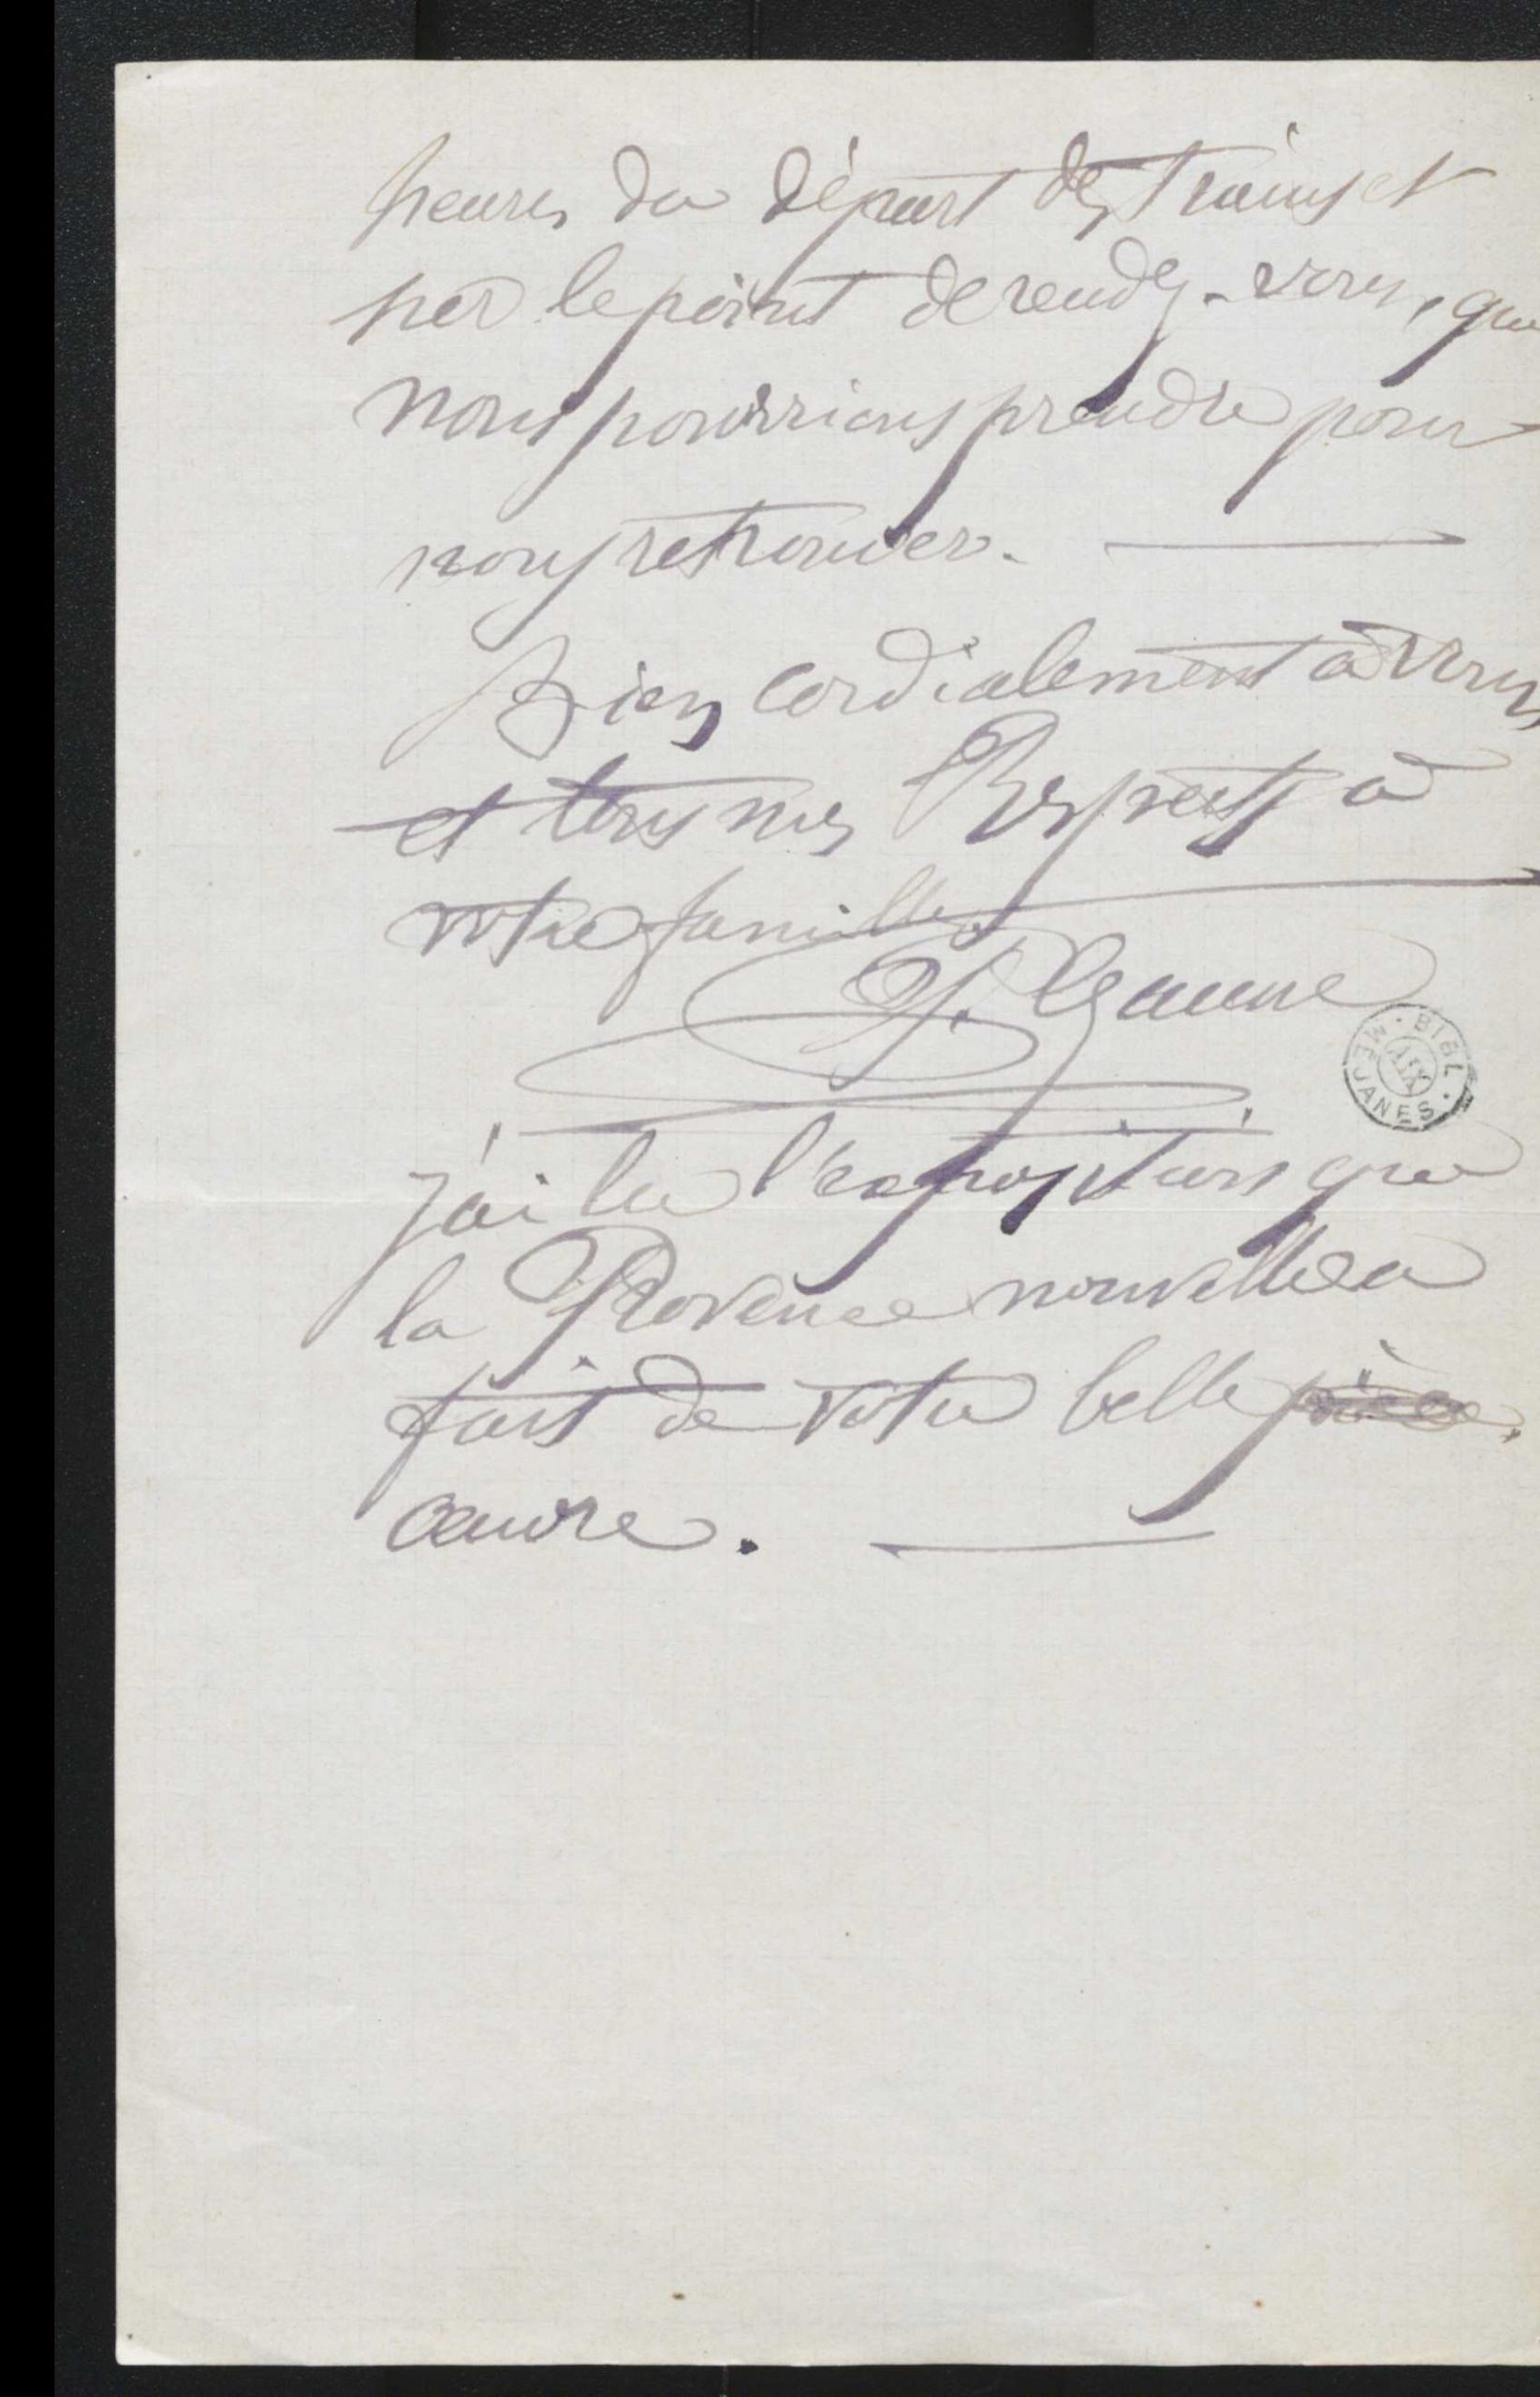 heures du départ des trains et
par le point de rendez-vous, que
nous pourrions prendre pour
nous retrouver.
Bien cordialement à vous
et tous mes Respects à
votre famille.
BIBL. MEJANES. AIX
j'ai lu l'exposition que
la Provence nouvelle a
fait de votre belle pièce,
œuvre.